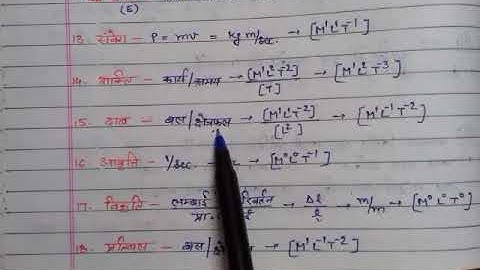 (E)
13. संवेग – P = mv = kg m/sec. → [M¹L¹T⁻¹]
14. शक्ति – कार्य/समय → [M¹L²T⁻²]/[T] → [M¹L²T⁻³]
15. दाब – बल/क्षेत्रफल → [M¹L¹T⁻²]/[L²] → [M¹L⁻¹T⁻²]
16. आवृत्ति – 1/sec → [M⁰L⁰T⁻¹]
17. विकृति – लम्बाई / प्रा. → Δl/l → m/m → [M⁰L⁰T⁰]
18. प्रतिबल – बल/ → [M¹L⁻¹T⁻²]